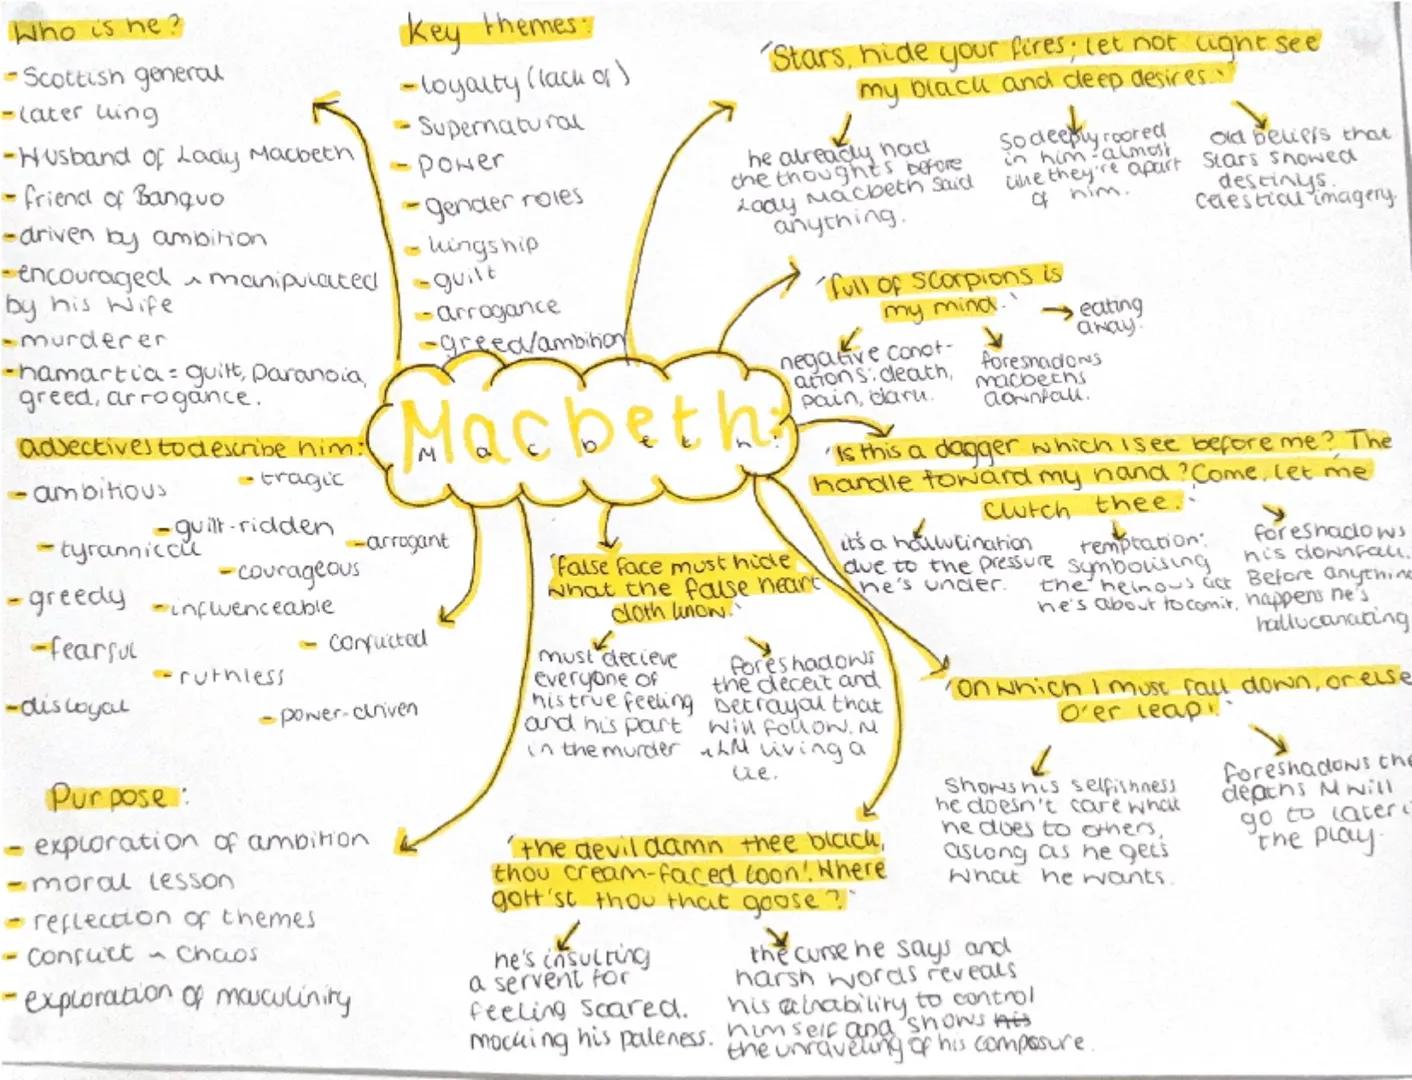 Who is he?
- Scottish general
- later king
- Husband of Lady Macbeth
- friend of Banquo
- driven by ambition
- encouraged & manipulated
by his wife
- murderer
- hamartia = guilt, paranoia,
greed, arrogance.
adjectives to describe him:
- ambitious
- tragic
- guilt-ridden
- tyrannical
- arrogant
- courageous
- greedy
- influenceable
- fearful
- conflicted
- ruthless
- disloyal
- power-driven
Purpose:
- exploration of ambition
- moral lesson
- reflection of themes
- conflict & chaos
- exploration of masculinity
Key themes:
- loyalty (lack of)
- supernatural
- power
- gender roles
- kingship
- guilt
- arrogance
- greed/ambition
Macbeth:
Macbeth:
'Stars, hide your fires; let not light see
my black and deep desires.'
he already had
the thoughts before
Lady Macbeth said
anything.
So deeply rooted
in him - almost
like they're apart
of him.
old beliefs that
stars showed
destinys.
Celestial imagery.
'full of scorpions is
my mind.'
eating
away.
negative conot-
ations: death,
pain, dark.
foreshadows
macbeths
downfall.
'Is this a dagger which I see before me? The
handle toward my hand? Come, let me
clutch thee.'
it's a hallucination
due to the pressure
he's under.
temptation:
symbolising
the heinous act
he's about to comit.
foreshadows
his downfall.
Before anything
happens he's
hallucanating
'false face must hide
what the false heart
doth know.'
must decieve
everyone of
his true feeling
and his part
in the murder
foreshadows
the deceit and
betrayal that
will follow. M
& LM living a
lie.
'On which I must fall down, or else
O'er leap.'
Shows his selfishness
he doesn't care what
he does to others,
aslong as he gets
what he wants.
foreshadows the
depths M will
go to later i
the play.
'the devil damn thee black,
thou cream-faced loon! Where
gott'st thou that goose?'
he's insulting
a servent for
feeling scared.
mocking his paleness.
the curse he says and
harsh words reveals
his inability to control
himself and shows his
the unraveling of his composure.